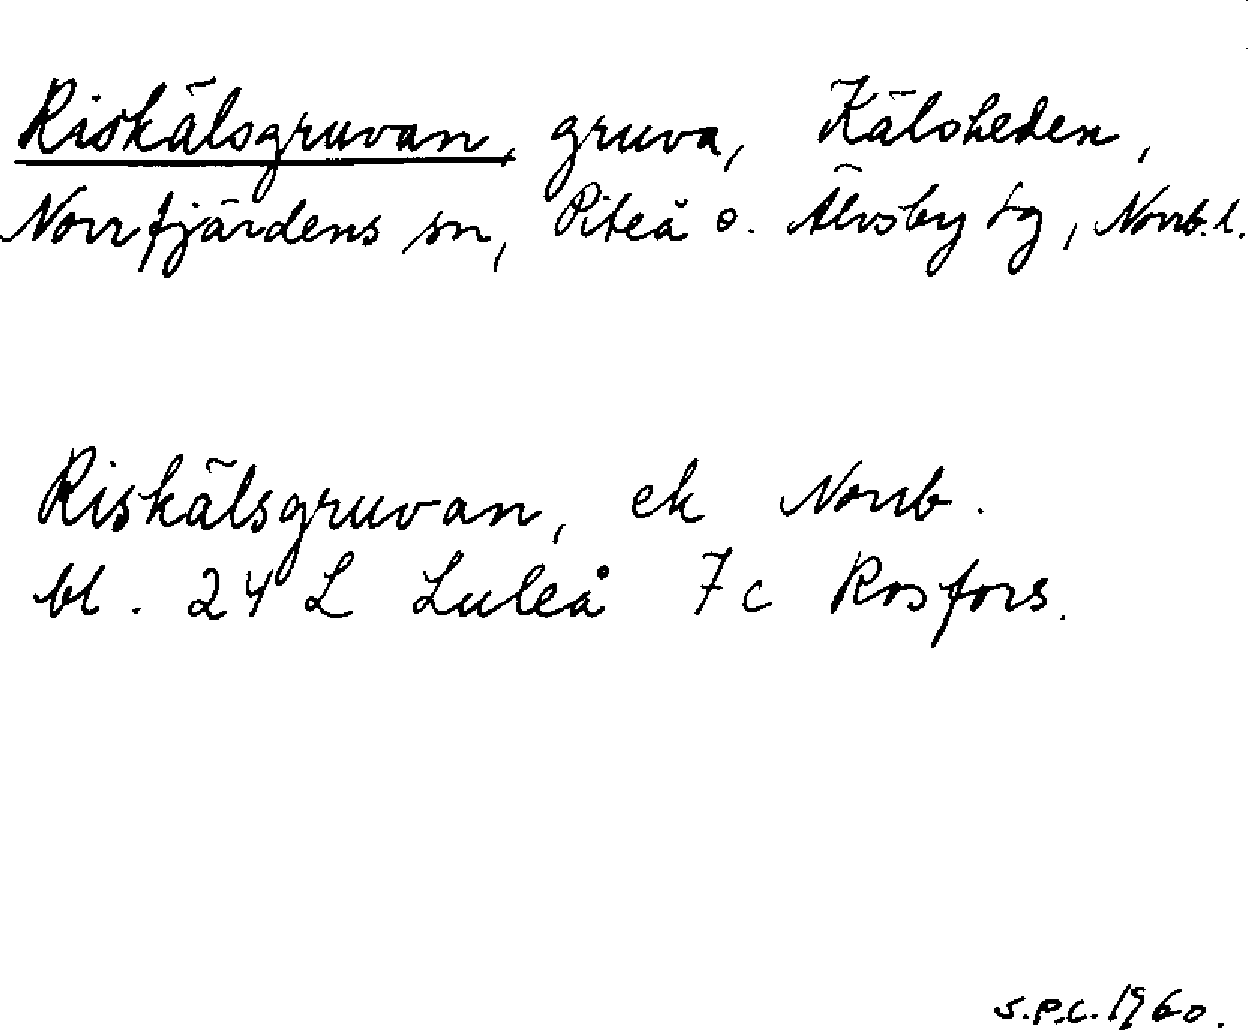 Riskälsgruvan, gruva, Kälsheden,
Norrfjärdens sn, Piteå o. Älvsby tg, Norrb.l.
Riskälsgruvan, ek Norrb.
bl. 24 L Luleå 7c Rosfors.
S.P.C. 1960.